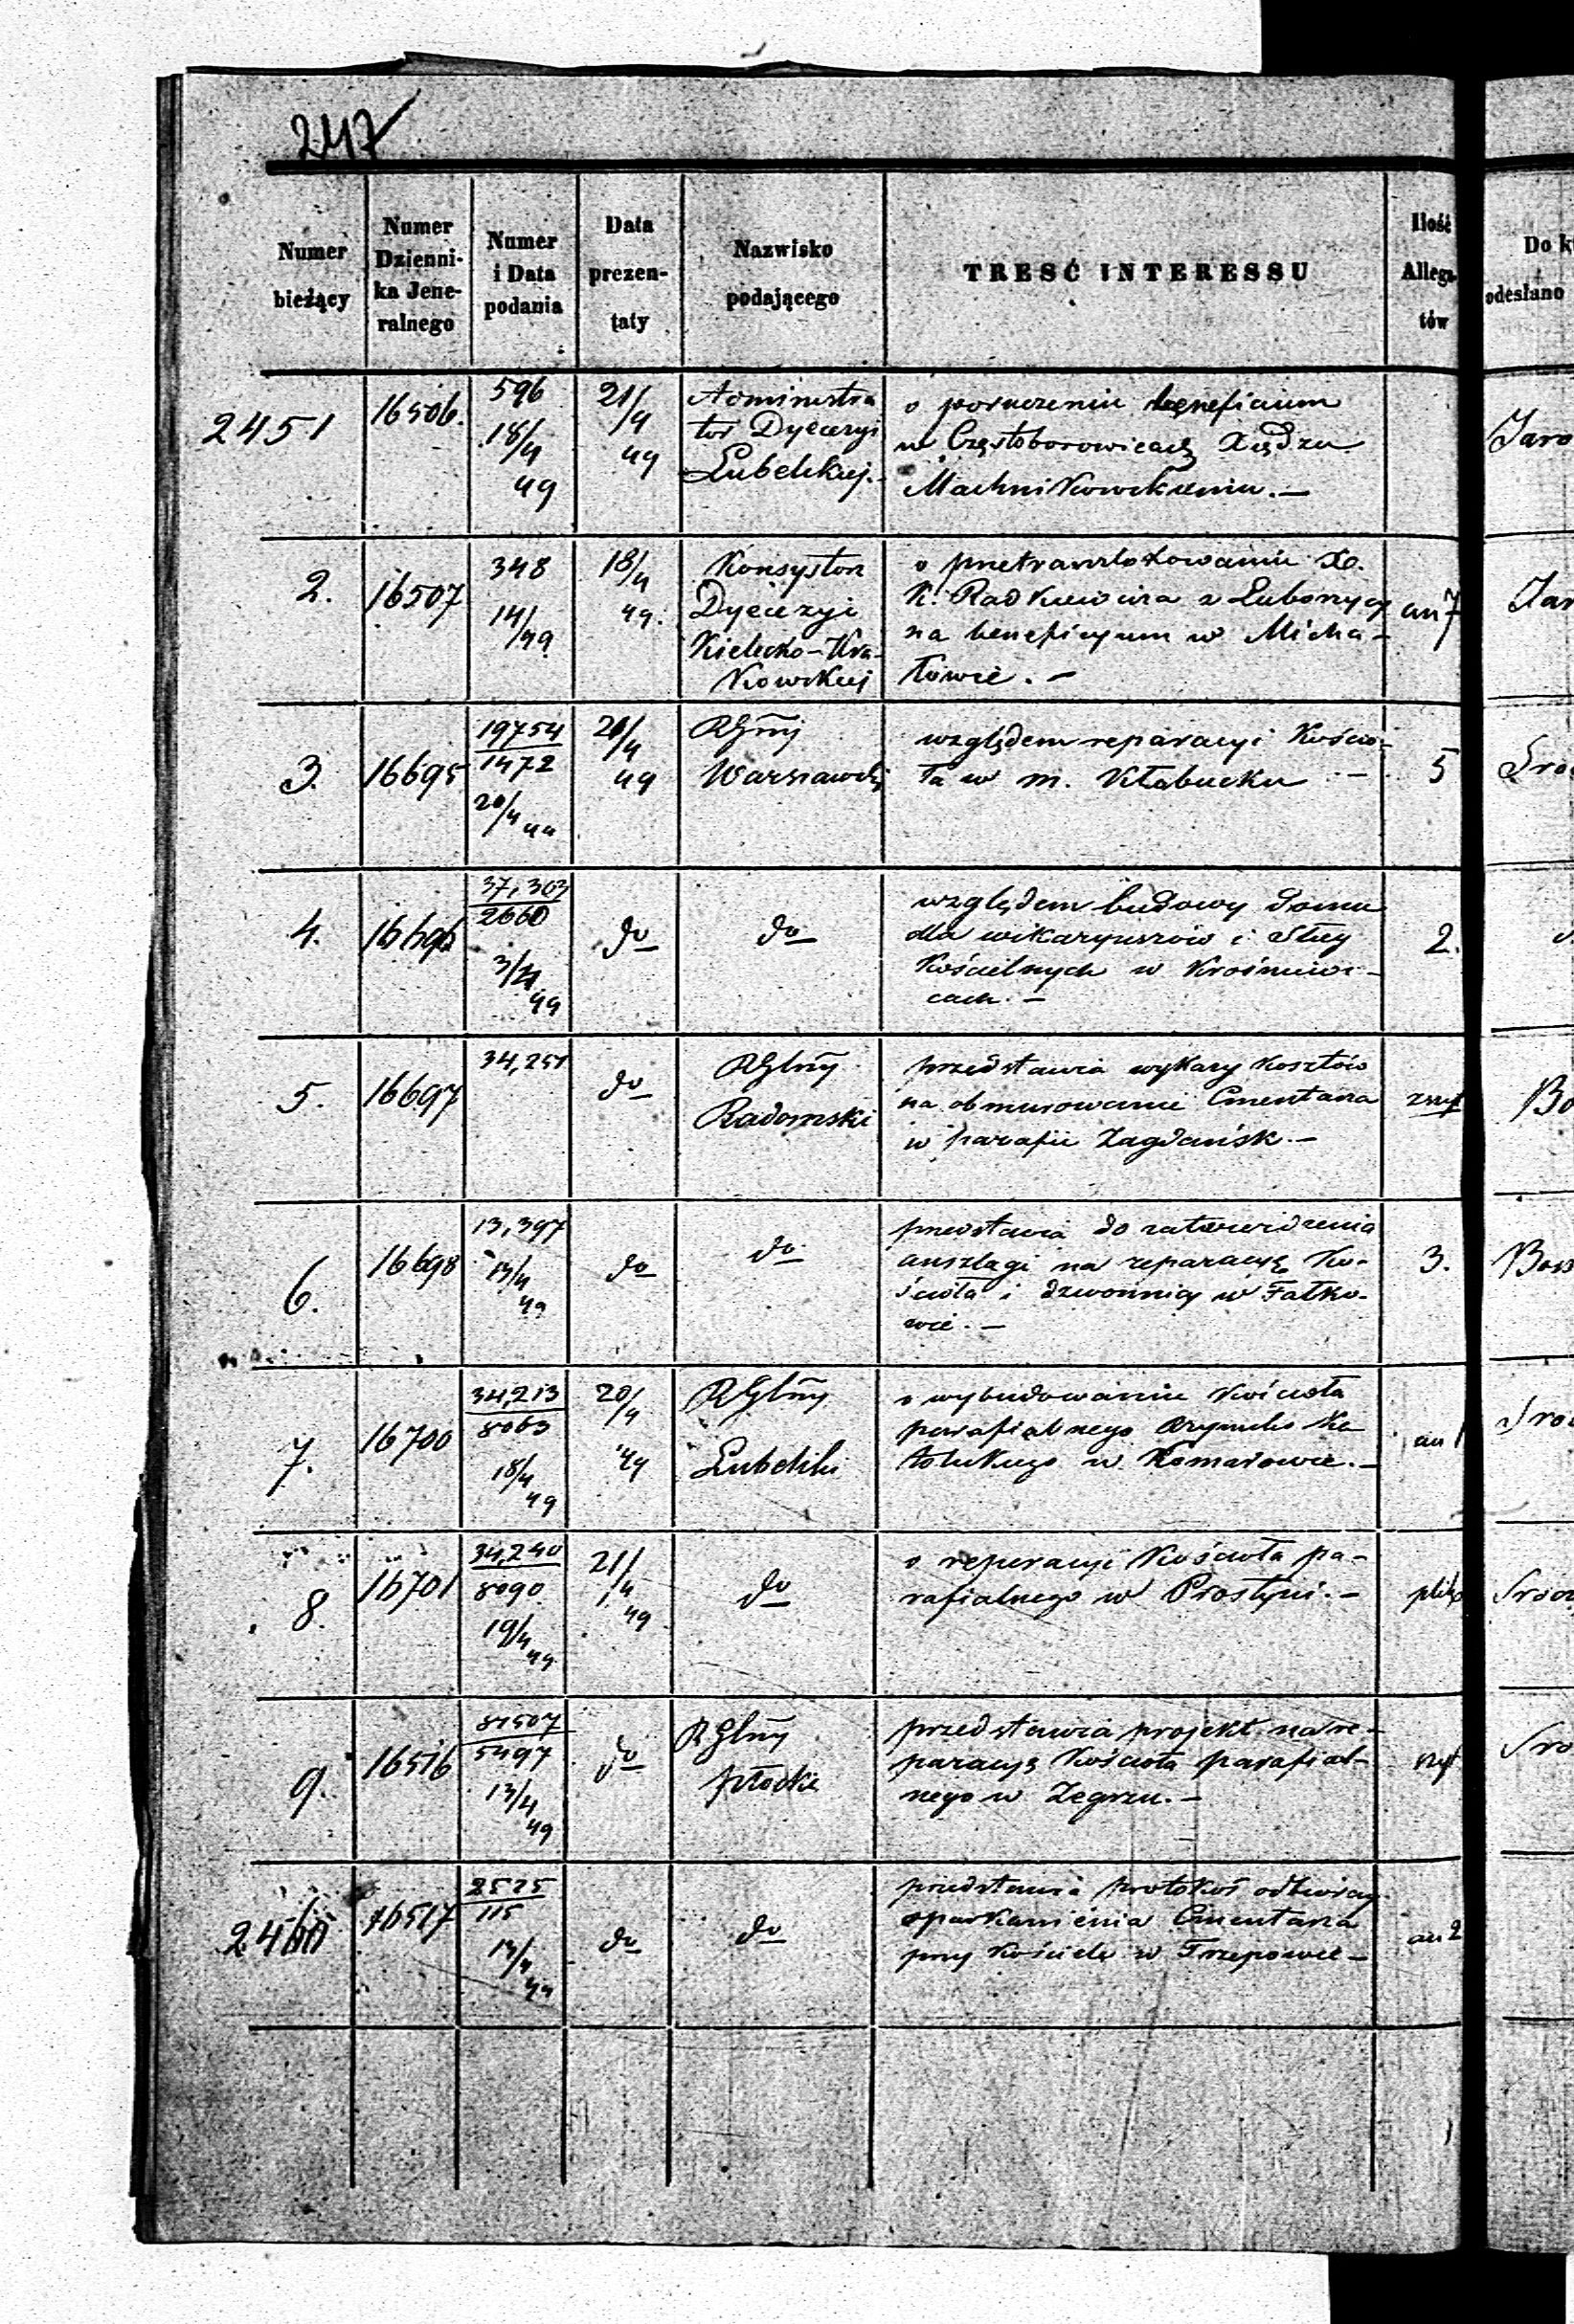 247
Numer bieżący
Numer Dzienni- ka Jene- ralnego
Numer i Data podania
Data prezen- taty
Nazwisko podającego
TRESĆ INTERESSU
Ilość Allega tów
Do k
odesłano
2451
16506.
596
18/4
49
21/4
49
Administra
tor Dyecezyi
Lubelskiej.
o poruczeniu beneficium
w Częstoborowicach Xiędzu
Machnikowskiemu.—
2.
16507
348
14/49
18/4
49.
Konsystorz
Dyecezyi
Kielecko-Kra-
kowskiej
o przetranslokowaniu X.
K. Radkiewicza z Luborzycy
na beneficyum w Micha-
łowie.—
an 7
3.
16695
19754
1472
20/4 49
20/4
49
RGny
Warszawski
względem reparacyi Kościo-
ła w m. Kłobucku —
5
4.
16696
37,303
2660
3/4
49
do
do
względem budowy Domu
dla wikaryuszów i Sług
Kościelnych w Krośniewi-
cach.—
2.
5.
16697
34,251
do
RGlny
Radomski
przedstawia wykazy kosztów
na obmurowanie Cmentarza
w parafii Zagdańsk.—
6.
16698
13,397
13/4
49
do
do
przedstawia do zatwierdzenia
anszlagi na reparacyę Ko-
ścioła i dzwonnicy w Fałko-
wie.—
3.
7.
16700
34,213
8063
18/4
49
20/4
49
RGlny
Lubelski
o wybudowaniu Kościoła
parafialnego Rzymsko Ka
tolickiego w Komarowie.—
an 1
8.
16701
34,240
8090
19/4
49
21/4
49
do
o reperacyi Kościoła pa-
rafialnego w Prostyni.—
plik
9.
16516
81507
5497
13/4
49
do
RGlny
Płocki
przedstawia projekt na re-
paracyę Kościoła parafial-
nego w Zegrzu.—
szyt
2460
16517
2525
115
13/4
49
do
do
przedstawia protokół odbiorczy
oparkanienia Cmentarza
przy Kościele w Trzepowie—
an 2